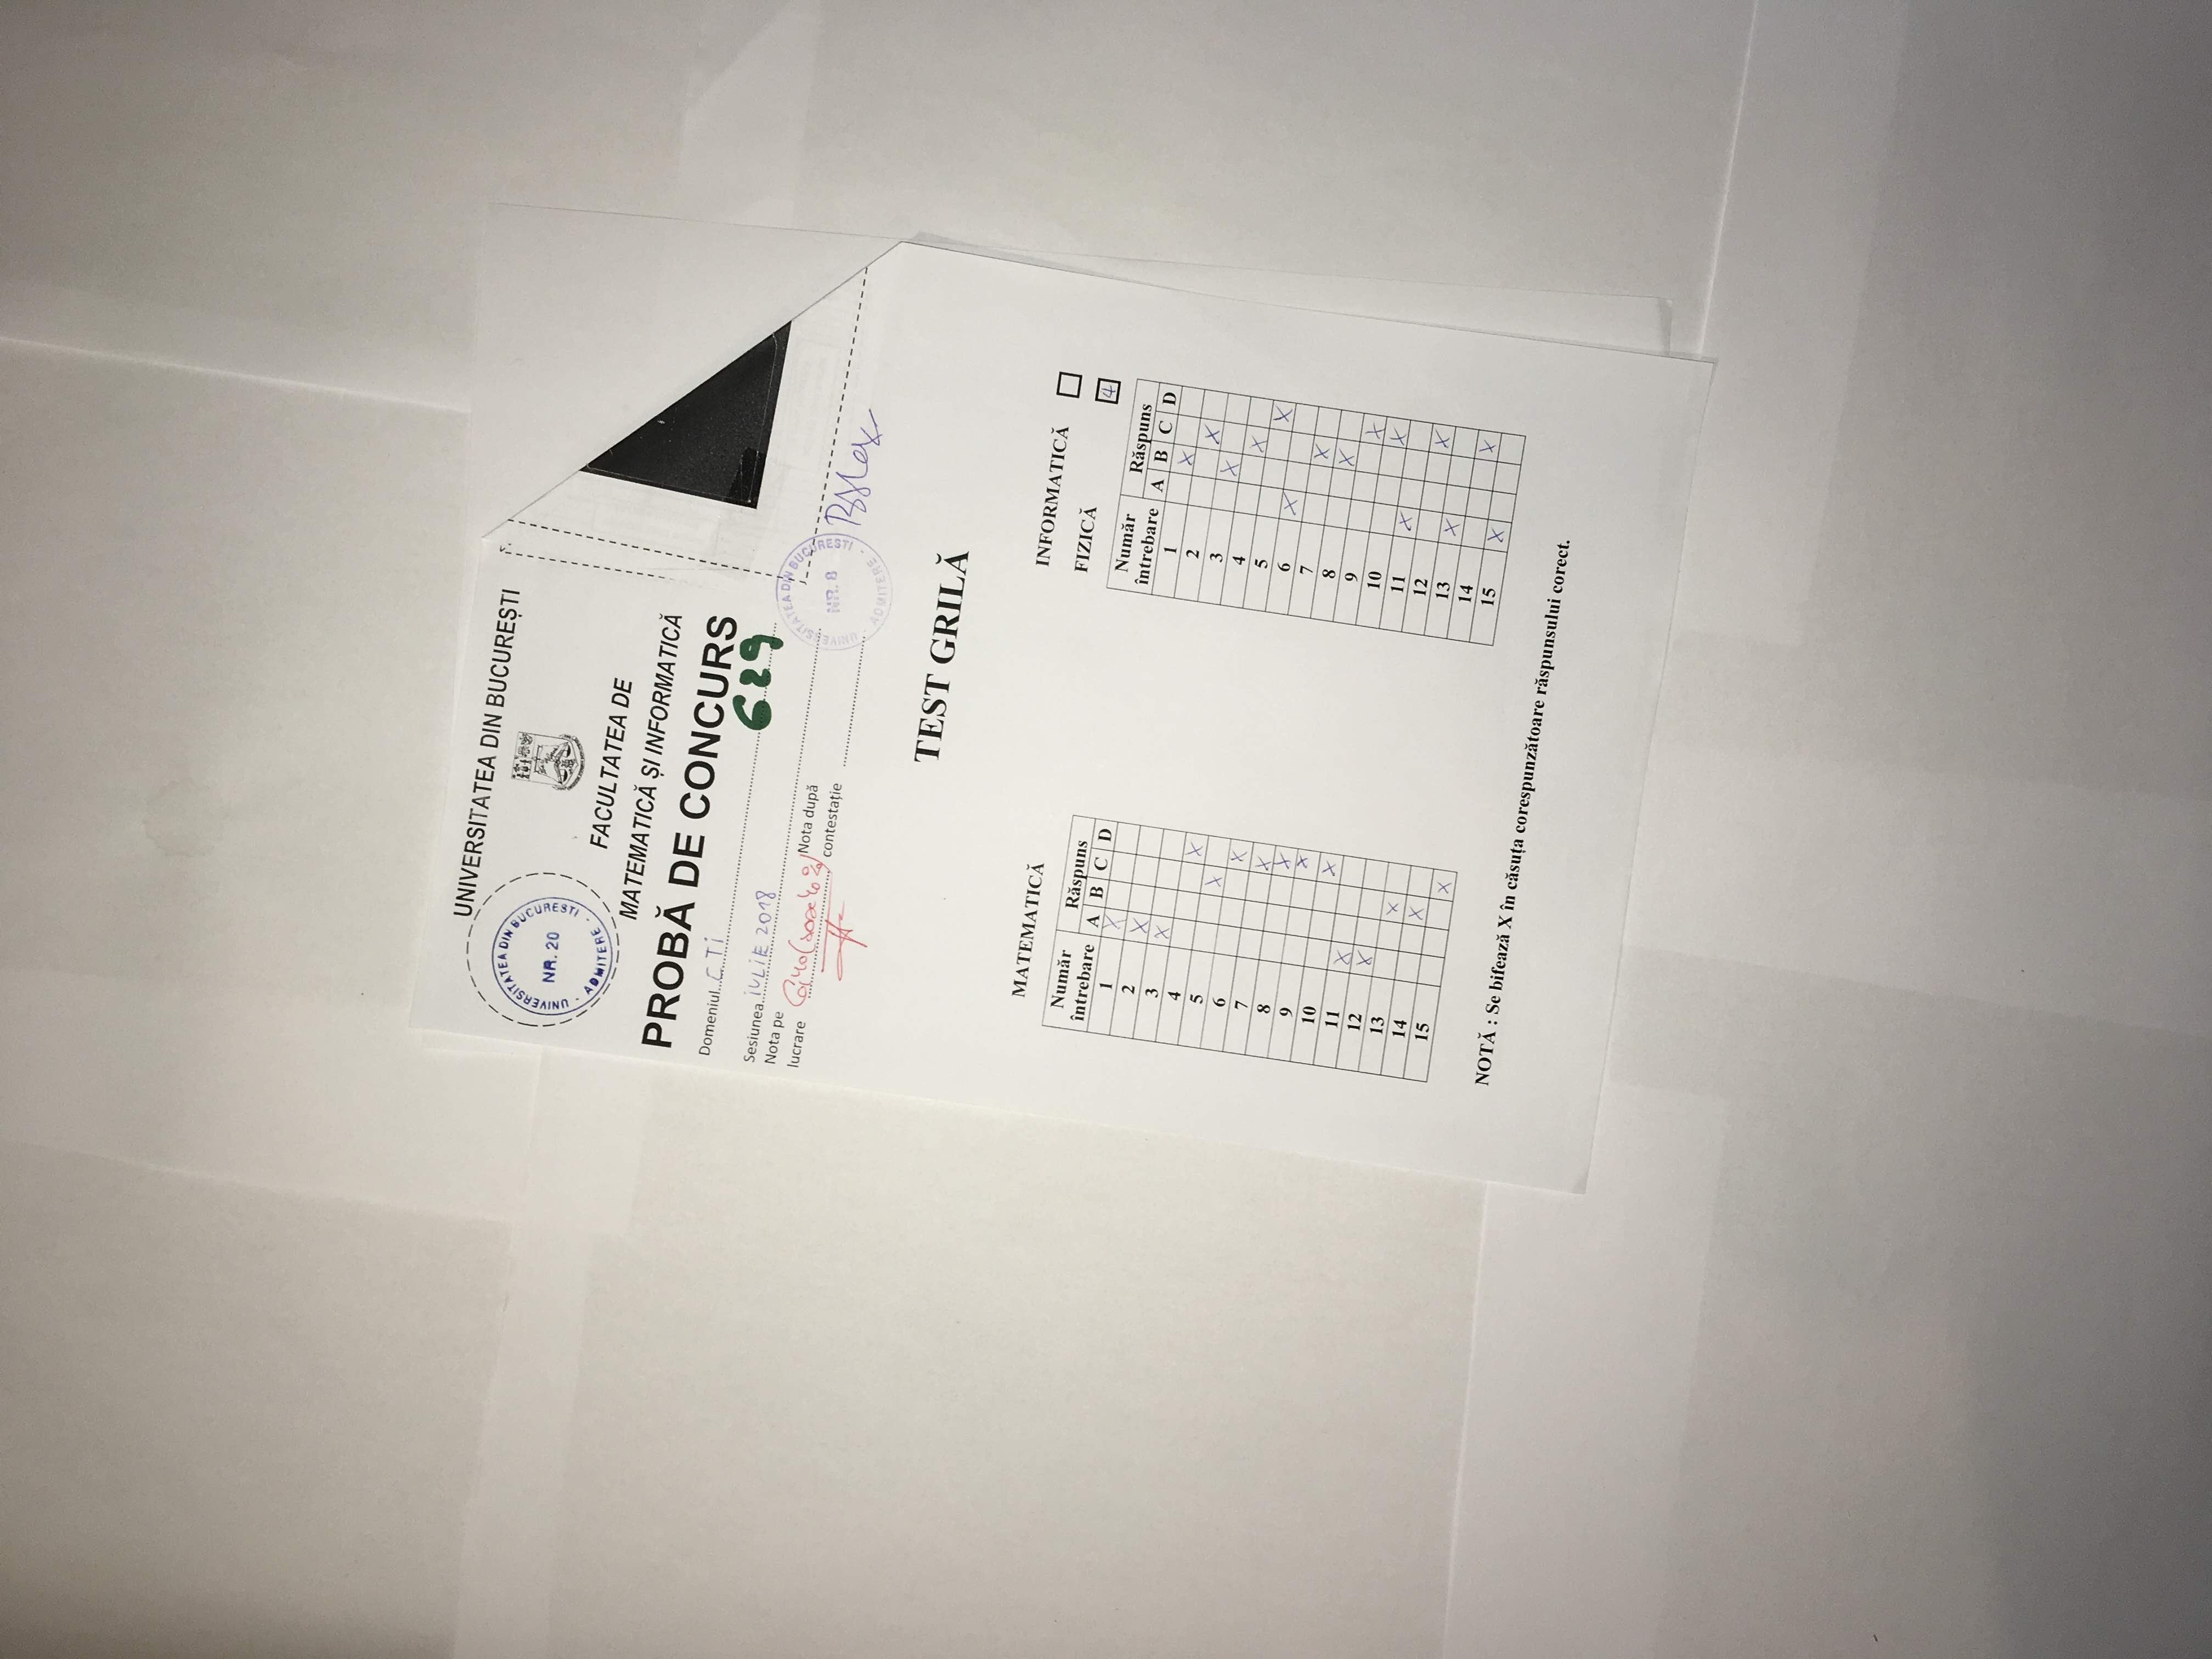 UNIVERSITATEA DIN BUCUREȘTI
UNIVERSITATEA DIN BUCURESTI
NR. 20
ADMITERE
FACULTATEA DE
MATEMATICĂ ȘI INFORMATICĂ
PROBĂ DE CONCURS
Domeniul CTi
629
Sesiunea iULiE 2018
Nota pe
lucrare 6,40
Nota după
contestație
UNIVERSITATEA DIN BUCURESTI
NR. 8
ADMITERE
TEST GRILĂ
MATEMATICĂ
Număr
întrebare
Răspuns
A B C D
1 X
2 X
3 X
4 X
5 X
6 X
7 X
8 X
9 X
10 X
11 X
12 X
13 X
14 X
15 X
INFORMATICĂ
FIZICĂ 4
Număr
întrebare
Răspuns
A B C D
1 X
2 X
3 X
4 X
5 X
6 X
7 X
8 X
9 X
10 X
11 X
12 X
13 X
14 X
15 X
NOTĂ : Se bifează X în căsuța corespunzătoare răspunsului corect.